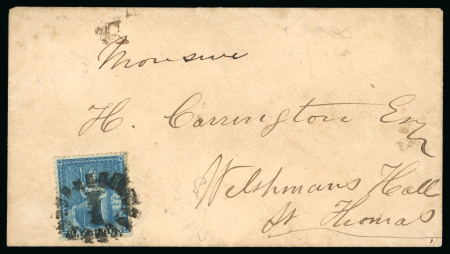 H. Carrington Esq
Welshmans Hall
St Thomas
1